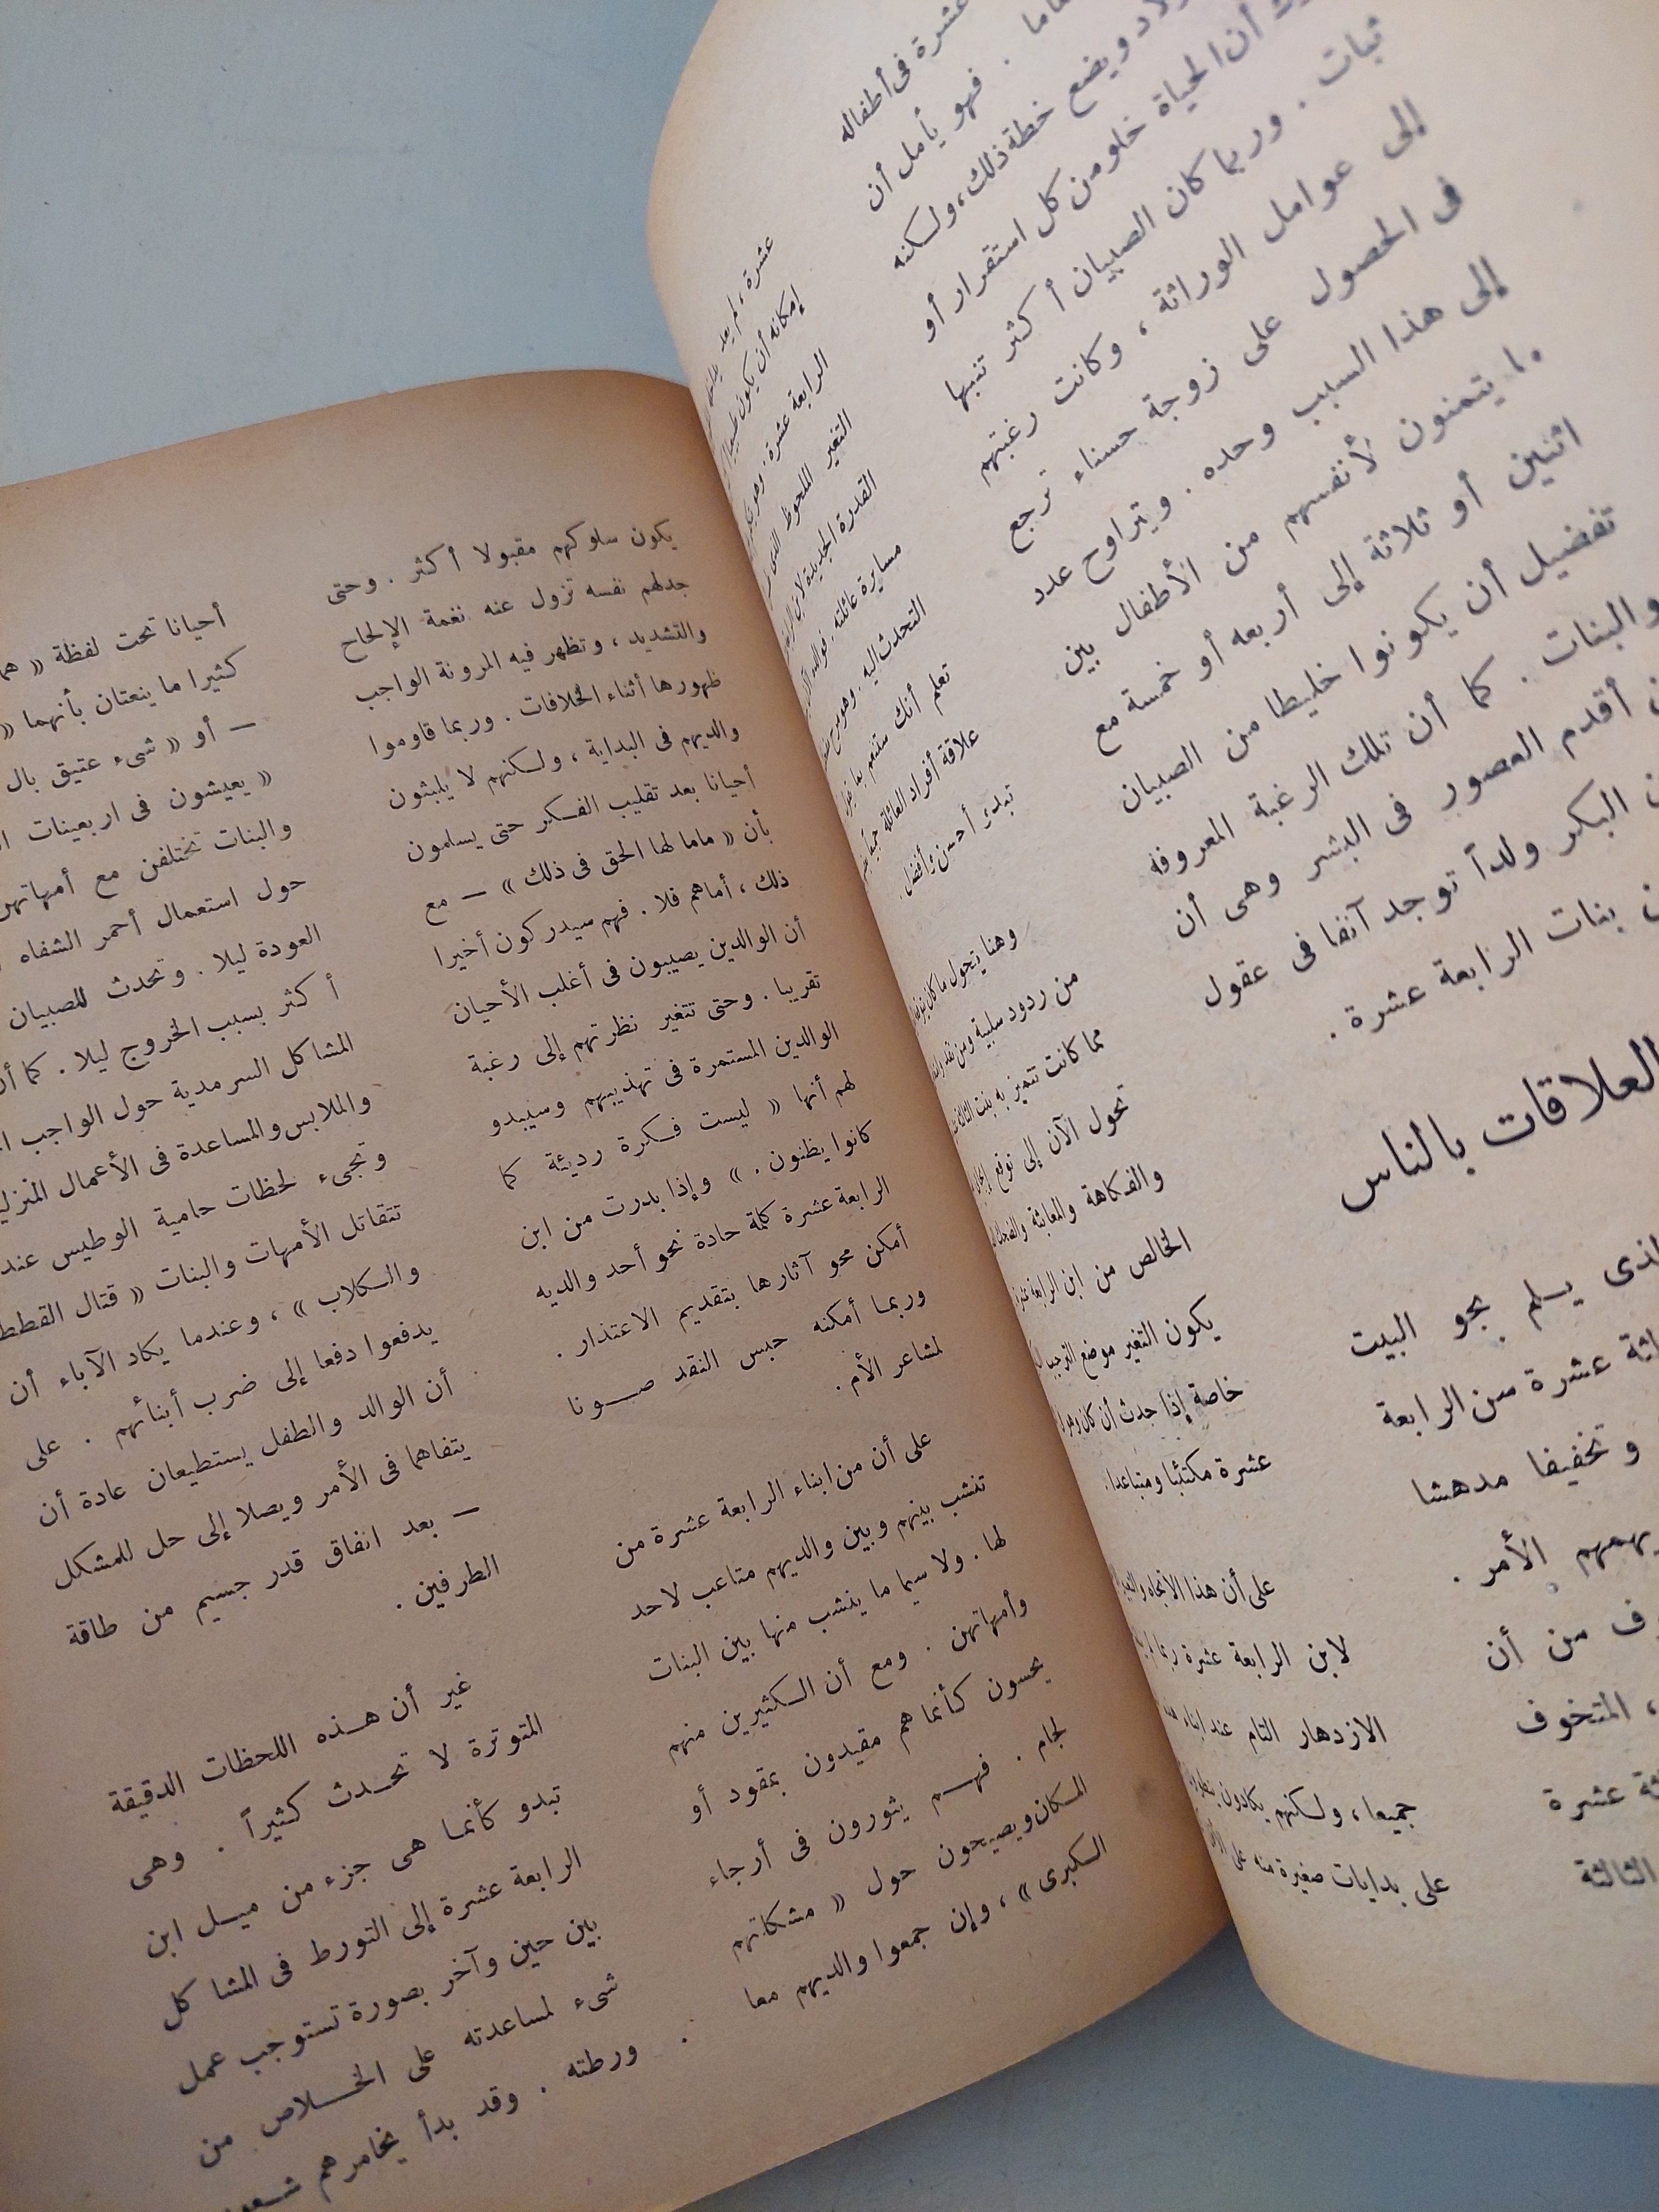 عشرة فى أطفاله
فهو يأمل أن
ويضع خطة ذلك، ولكنه
أن الحياة خلو من كل استقرار أو
ثبات . وربما كان الصبيان أكثر تنبها
إلى عوامل الوراثة ، وكانت رغبتهم
فى الحصول على زوجة حسناء ترجع
إلى هذا السبب وحده . ويتراوح عدد
ما يتمنون لأنفسهم من الأطفال بين
اثنين أو ثلاثة إلى أربعه أو خمسة مع
تفضيل أن يكونوا خليطا من الصبيان
والبنات . كما أن تلك الرغبة المعروفة
أقدم العصور فى البشر وهى أن
البكر ولداً توجد آنفا فى عقول
بنات الرابعة عشرة .
العلاقات بالناس
يسلم بجو البيت
عشرة من الرابعة
وتخفيفا مدهشا
يهمهم الأمر .
من أن
، المتخوف
عشرة
الثالثة
عشرة ، لم يعد
إمكانه أن يكون
الرابعة عشرة . وهو
التغير الملحوظ
القدرة الجديدة لابن
مسايرة عائلته .
التحدث إليه .
تعلم أنك ستنعم
علاقة أفراد العائلة جميعا
تبدو أحسن وأفضل .
وهنا يتحول ما كان
من ردود سلبية ومن نقد
مما كانت تتميز به بنت الثالثة
تحول الآن إلى نوع
والفكاهة والمعابثة
الخالص من ابن الرابعة عشرة
يكون التغير موضع الترحيب
خاصة إذا حدث أن كان
عشرة مكتئبا ومتباعدا .
على أن هذا الاتجاه
لابن الرابعة عشرة ربما
الازدهار التام عند أبناء
جميعا ، ولكنهم يكادون
على بدايات صغيرة منه
يكون سلوكهم مقبولا أكثر . وحتى
جدلهم نفسه تزول عنه نغمة الإلحاح
والتشديد ، وتظهر فيه المرونة الواجب
ظهورها أثناء الخلافات . وربما قاوموا
والديهم فى البداية ، ولكنهم لا يلبثون
أحيانا بعد تقليب الفكر حتى يسلمون
بأن « ماما لها الحق فى ذلك » — مع
ذلك ، أماهم فلا . فهم سيدركون أخيرا
أن الوالدين يصيبون فى أغلب الأحيان
تقريبا . وحتى تتغير نظرتهم إلى رغبة
الوالدين المستمرة فى تهذيبهم وسيبدو
لهم أنها « ليست فكرة رديئة كما
كانوا يظنون . » وإذا بدرت من ابن
الرابعة عشرة كلمة حادة نحو أحد والديه
أمكن محو آثارها بتقديم الاعتذار .
وربما أمكنه حبس النقد صونا
لمشاعر الأم .
على أن من ابناء الرابعة عشرة من
تنشب بينهم وبين والديهم متاعب لاحد
لها . ولا سيما ما ينشب منها بين البنات
وأمهاتهن . ومع أن الكثيرين منهم
يحسون كأنما هم مقيدون بمقود أو
لجام . فهم يثورون فى أرجاء
المكان ويصيحون حول « مشكلتهم
الكبرى » ، وإن جمعوا والديهم معا
أحيانا تحت لفظة «
كثيرا ما ينعتان بأنهما «
— أو « شىء عتيق بال
« يعيشون فى اربعينات
والبنات تختلفن مع أمهاتهن
حول استعمال أحمر الشفاه
العودة ليلا . وتحدث للصبيان
أكثر بسبب الخروج ليلا . كما أن
المشاكل السرمدية حول الواجب
والملابس والمساعدة فى الأعمال المنزلية
وتجىء لحظات حامية الوطيس عند
تتقاتل الأمهات والبنات « قتال القطط
والكلاب » ، وعندما يكاد الآباء أن
يدفعوا دفعا إلى ضرب أبنائهم . على
أن الوالد والطفل يستطيعان عادة أن
يتفاهما فى الأمر ويصلا إلى حل للمشكل
— بعد انفاق قدر جسيم من طاقة
الطرفين .
غير أن هذه اللحظات الدقيقة
المتوترة لا تحدث كثيراً . وهى
تبدو كأنما هى جزء من ميل ابن
الرابعة عشرة إلى التورط فى المشاكل
بين حين وآخر بصورة تستوجب عمل
شىء لمساعدته على الخلاص من
ورطته . وقد بدأ يخامرهم